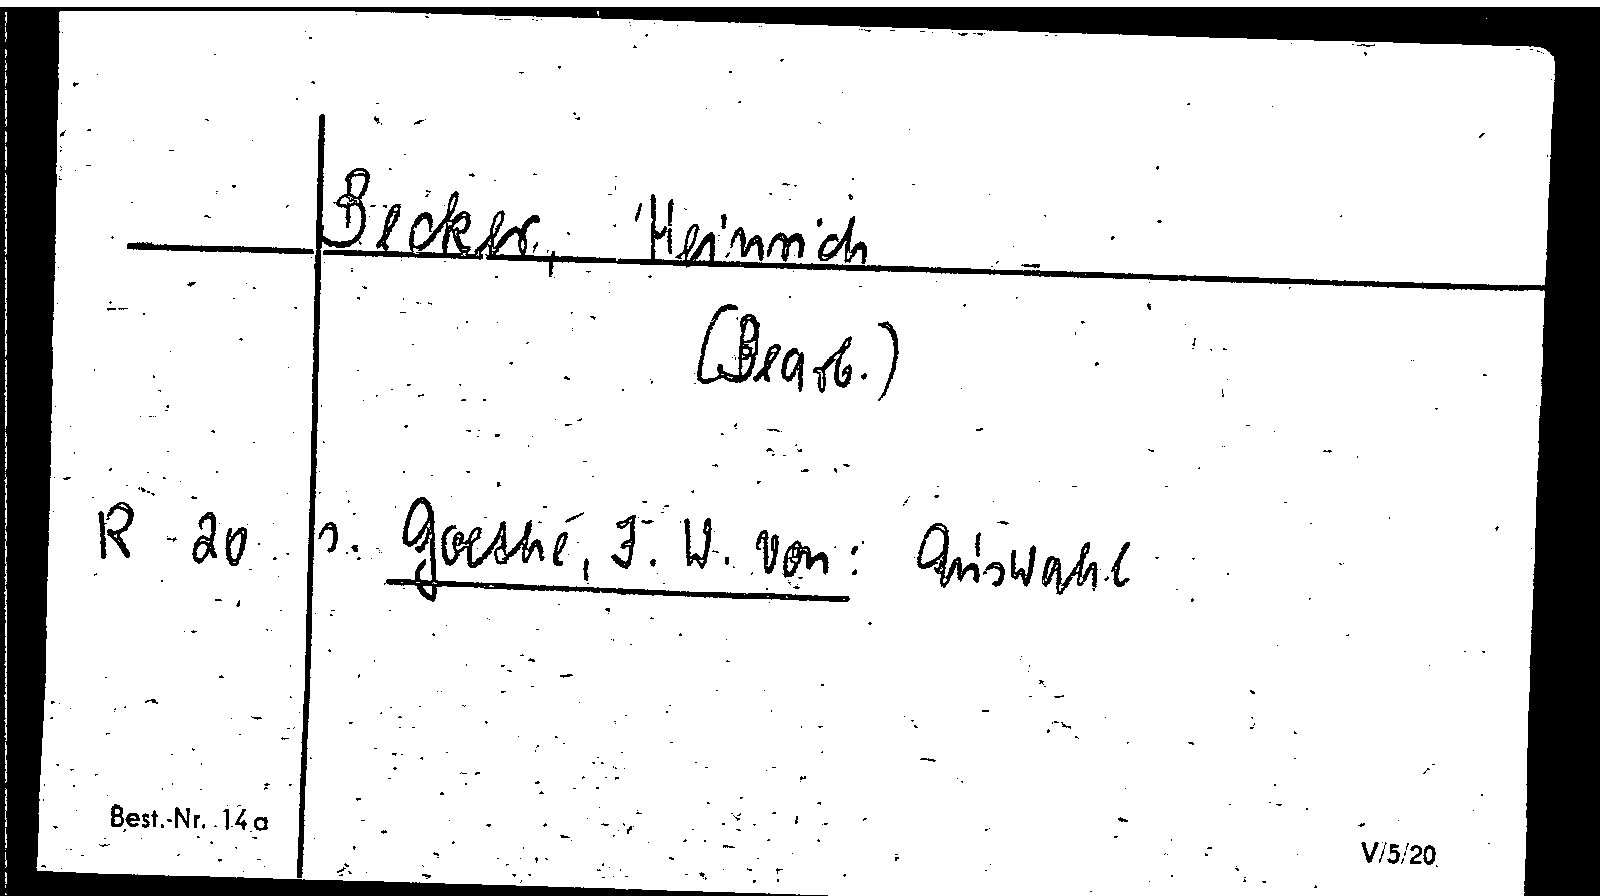 Becker, Heinrich
(Bearb.)
R 20 s. Goethe, J. W. von: Auswahl
Best.-Nr. 14a
V/5/20